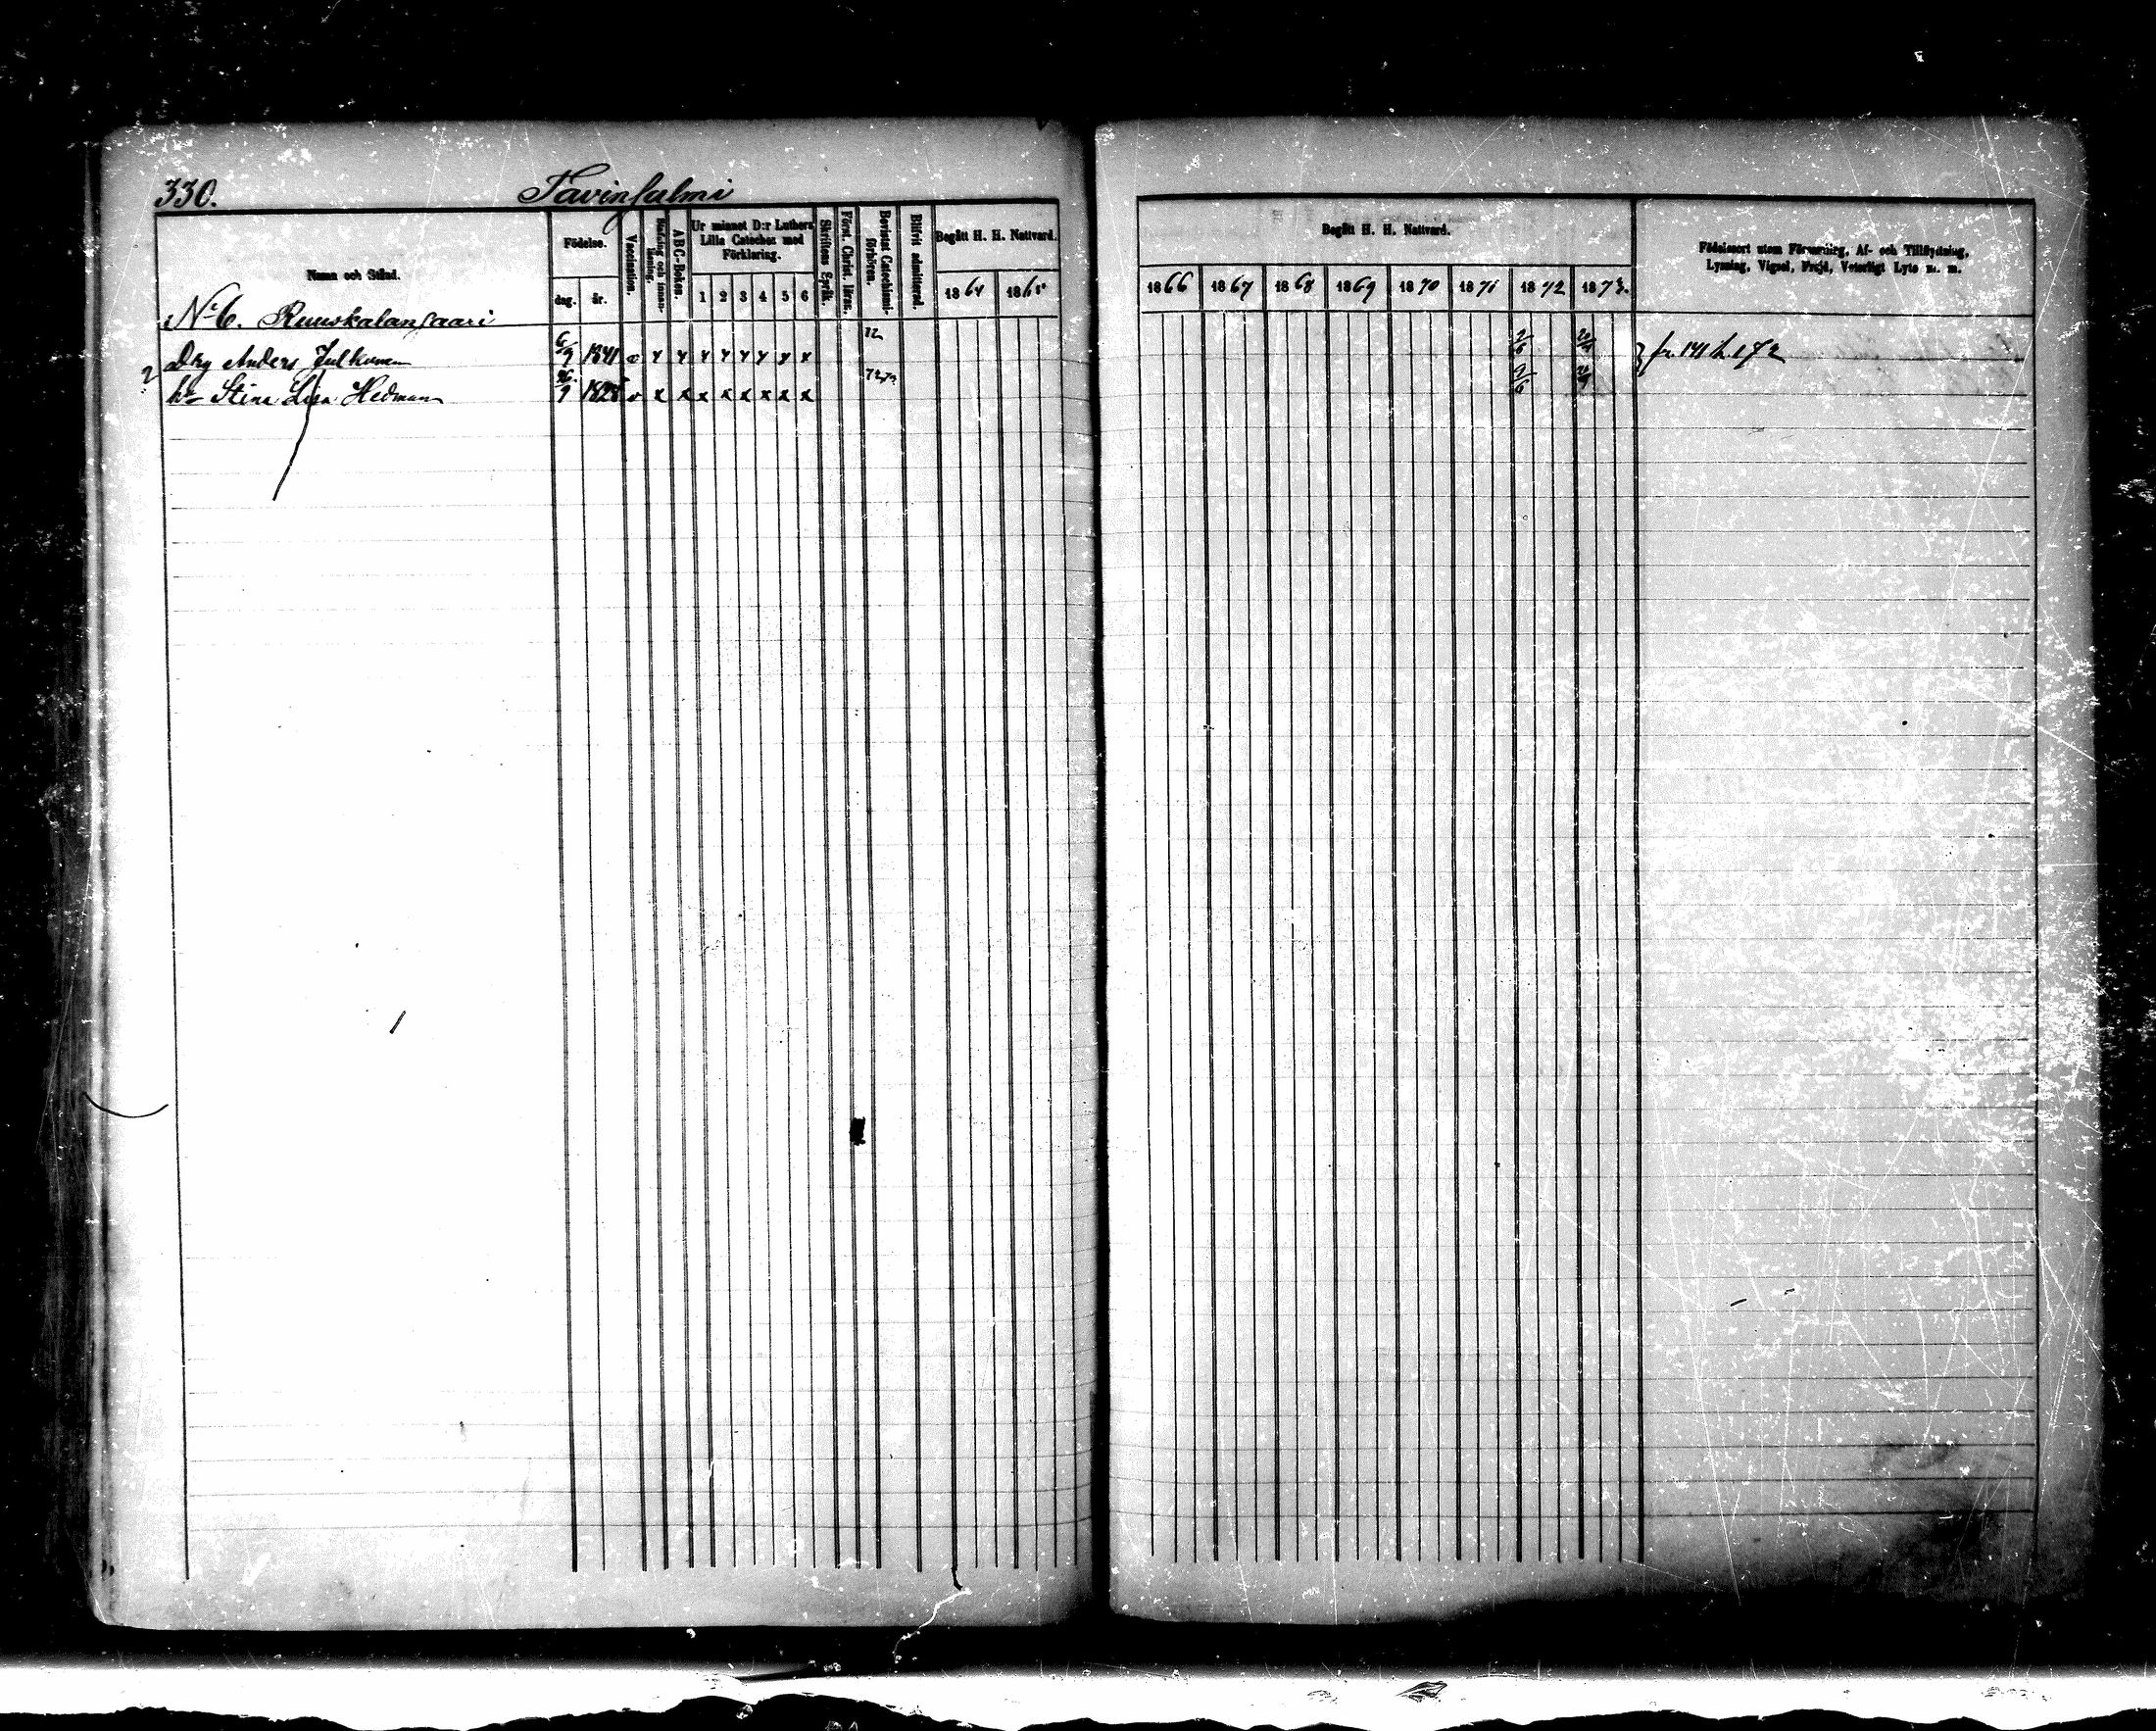 330. Tavinsalmi
Namn och Stånd. Födelse. Vaccination. Stafning och innanläsning. ABC-Boken. Ur minnet D:r Luthers Lilla Cateches med Förklaring. Skriftens Språk. Först. Christ. läran. Bevistat Catechismiförhören. Blifvit admitterad. Begått H. H. Nattvard.
dag. år. 1 2 3 4 5 6 1864 1865
Begått H. H. Nattvard. Födelseort utom Församling, Af- och Tillflyttning, Lysning, Vigsel, Frejd, Veterligt Lyte m. m.
1866 1867 1868 1869 1870 1871 1872 1873.
No 6. Ruuskalansaari
Drg Anders Julkunen 6/9 1841 v x x x x x x x x 72 2/6 fr. 141 h. 172
2
hu Stina Lisa Hedman 26/9 1828 v x x x x x x x x 72,73 2/6